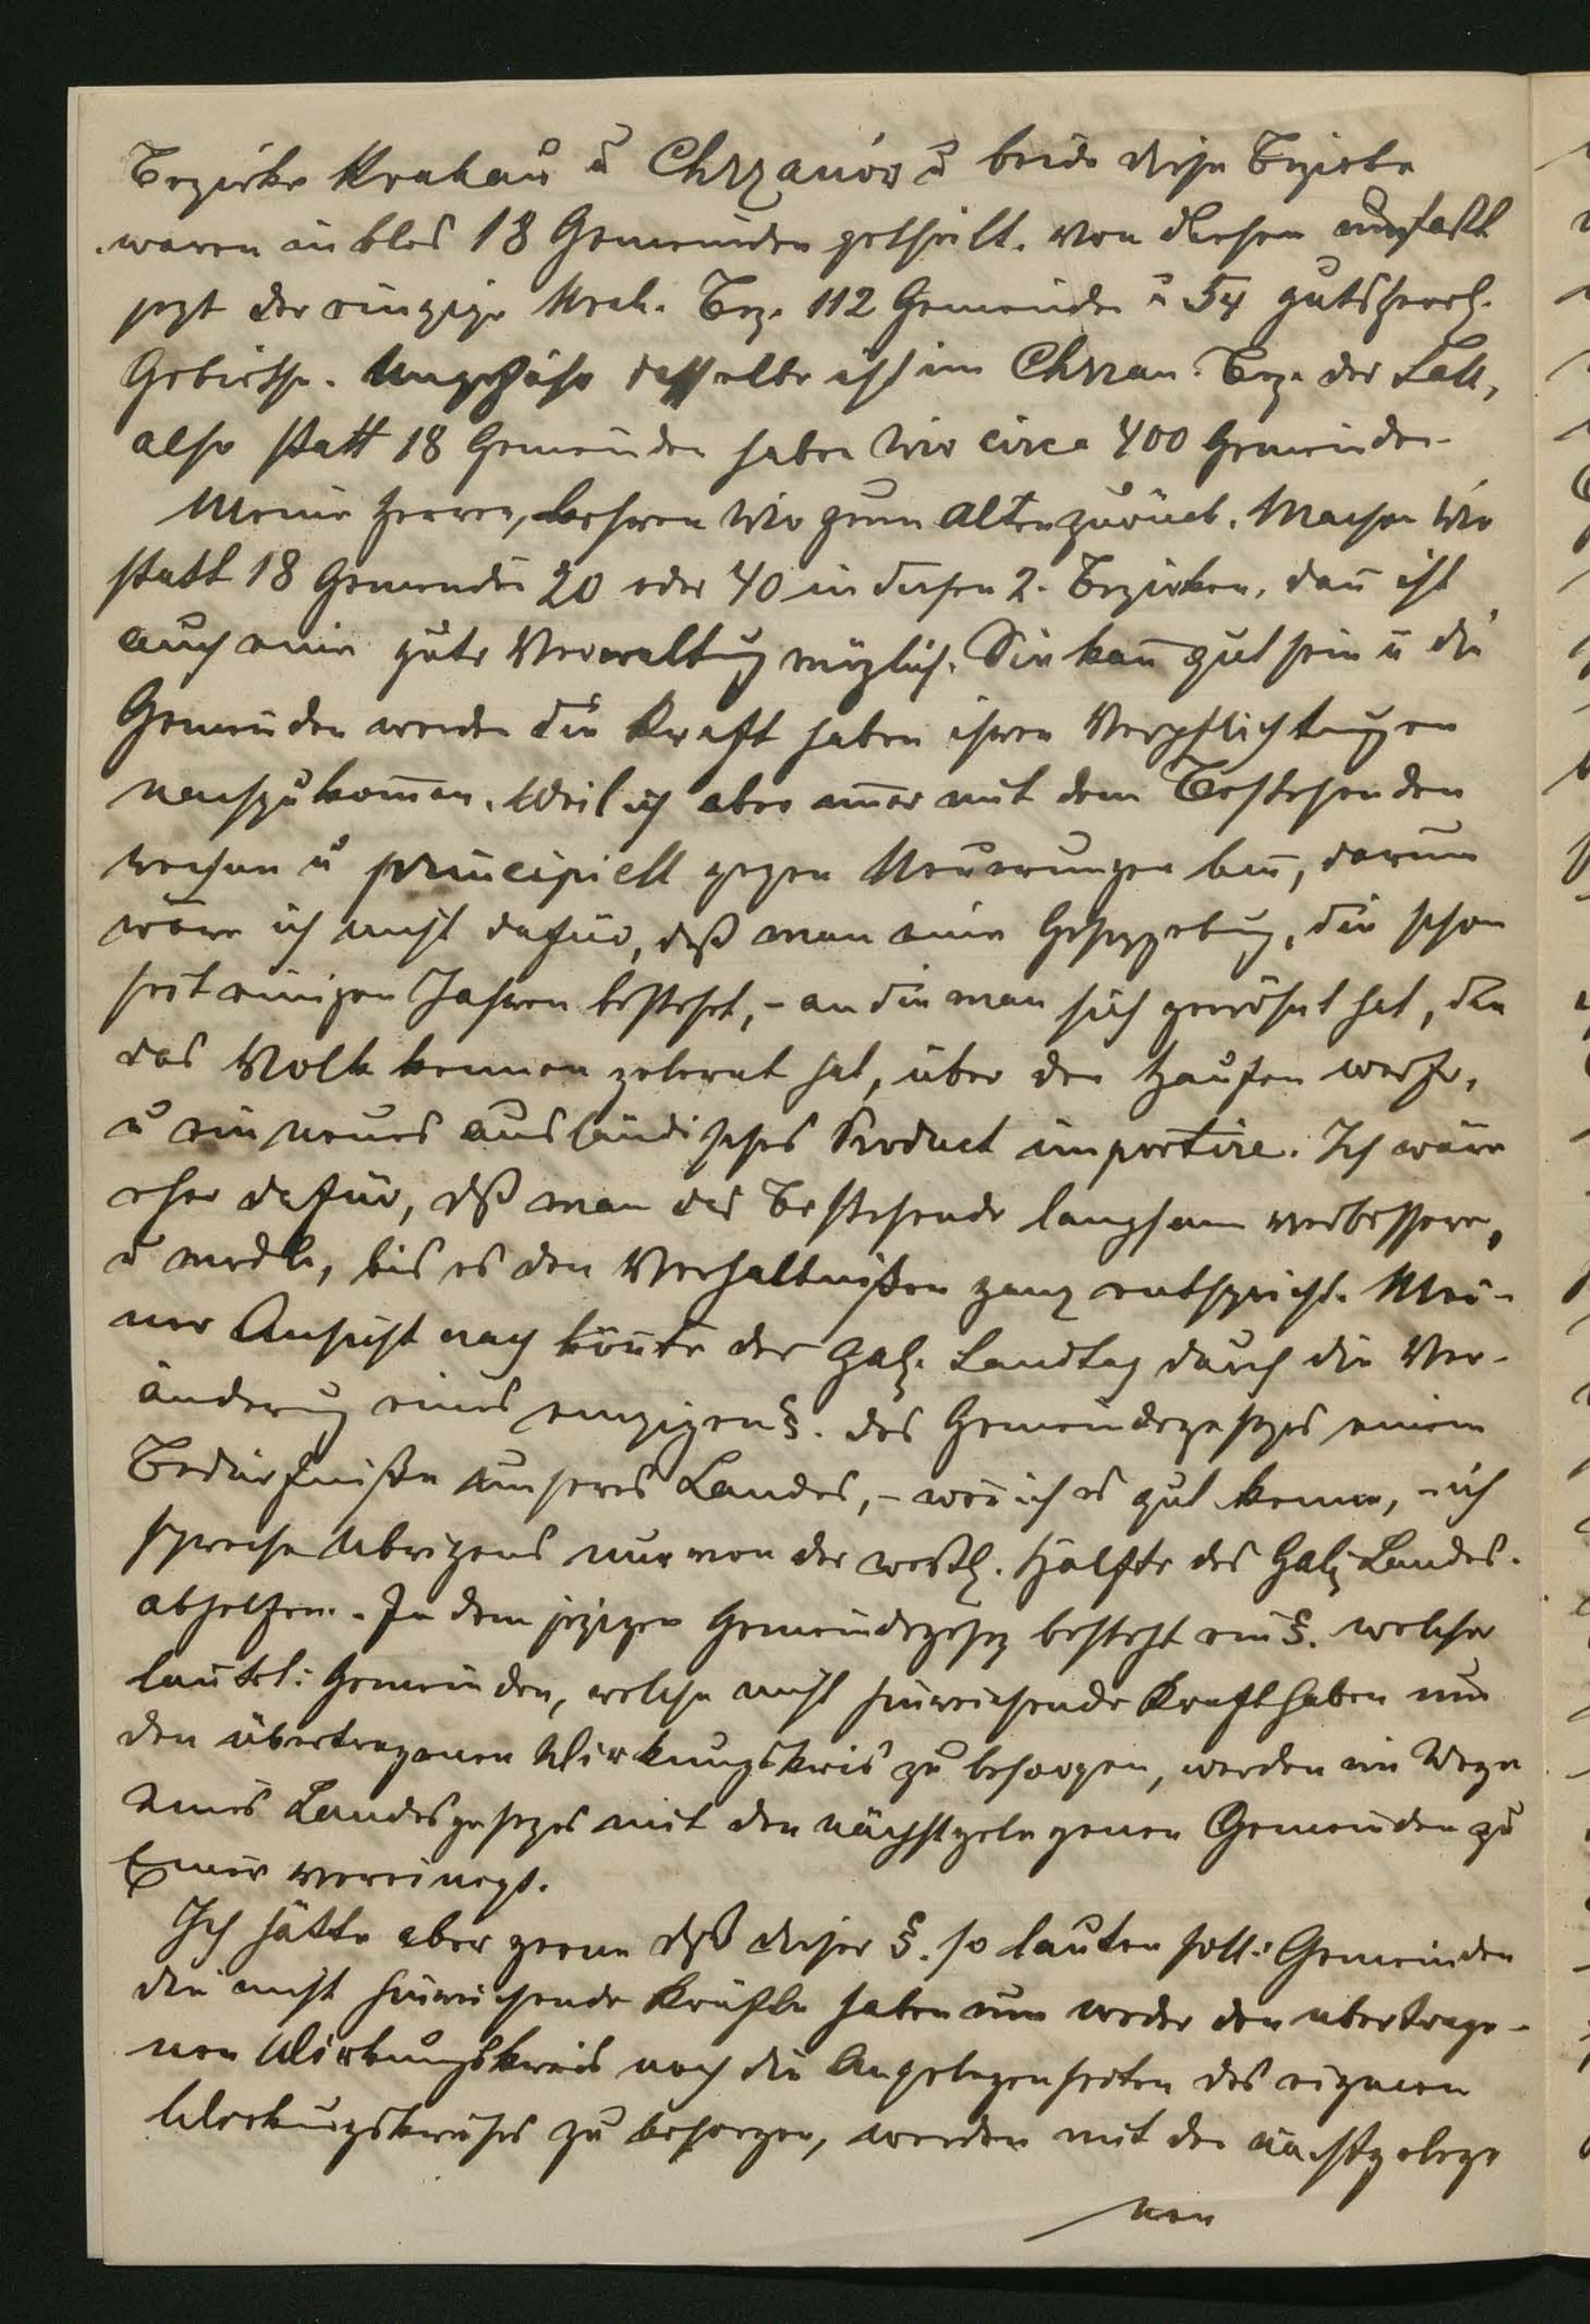 Bezirke Krakau u Chrzanów u beide diese Bezirke
waren in blos 18 Gemeinden getheilt. Von diesen umfaßt
jezt der einzige Krak. Bez. 112 Gemeinden u 54 gutsherrl.
Gebiethe. Ungefähr dasselbe ist im Chrzan. Bez. der Fall,
also statt 18 Gemeinden haben wir circa 400 Gemeinden.
Meine Herren, kehren wir zum Alten zurück. Machen wir
statt 18 Gemeinden 20 oder 40 in diesen 2. Bezirken, dan̄ ist
auch eine gute Verwaltug möglich. Sie kan̄ gut sein u die
Gemeinden werden die Kraft haben ihren Verpflichtugen
nachzukom̄en. Weil ich aber im̄er mit dem Bestehenden
rechne u principiell gegen Neuerungen bin, darum
wäre ich nicht dafür, daß man eine Gesezgebug, die schon
seit einigen Jahren besteht, - an die man sich gewöhnt hat, die
das Volk kennen gelernt hat, über den Haufen werfe,
u ein neues ausländisches Product importire. Ich wäre
eher dafür, dß man das Bestehende langsam verbessere,
u modle, bis es den Verhaltnißen ganz entspricht. Mei-
ner Ansicht nach kön̄te der Galz. Landtag durch die Ver-
änderug eines einzigen §. des Gemeindegesezes einem
Bedürfniße unseres Landes, - wen̄ ich es gut kenne, - ich
spreche übrigens nur von der westl. Hälfte des Galz Landes.
abhelfen. - In dem jezigen Gemeindegesez besteht ein §. welcher
lautet: Gemeinden, welche nicht hinreichende Kraft haben um
den übertragenen Wirkungskreis zu besorgen, werden im Wege
eines Landesgesezes mit den nächstgelegenen Gemeinden zu
Einer vereinigt.
Ich hätte aber gerne dß dieser §. so lauten soll: Gemeinden
die nicht hinreichende Kräfte haben um weder den übertrage-
nen Wirkungskreis noch die Angelegenheiten des eigenen
Wirkugskreises zu besorgen, werden mit den nächstgelege
nen